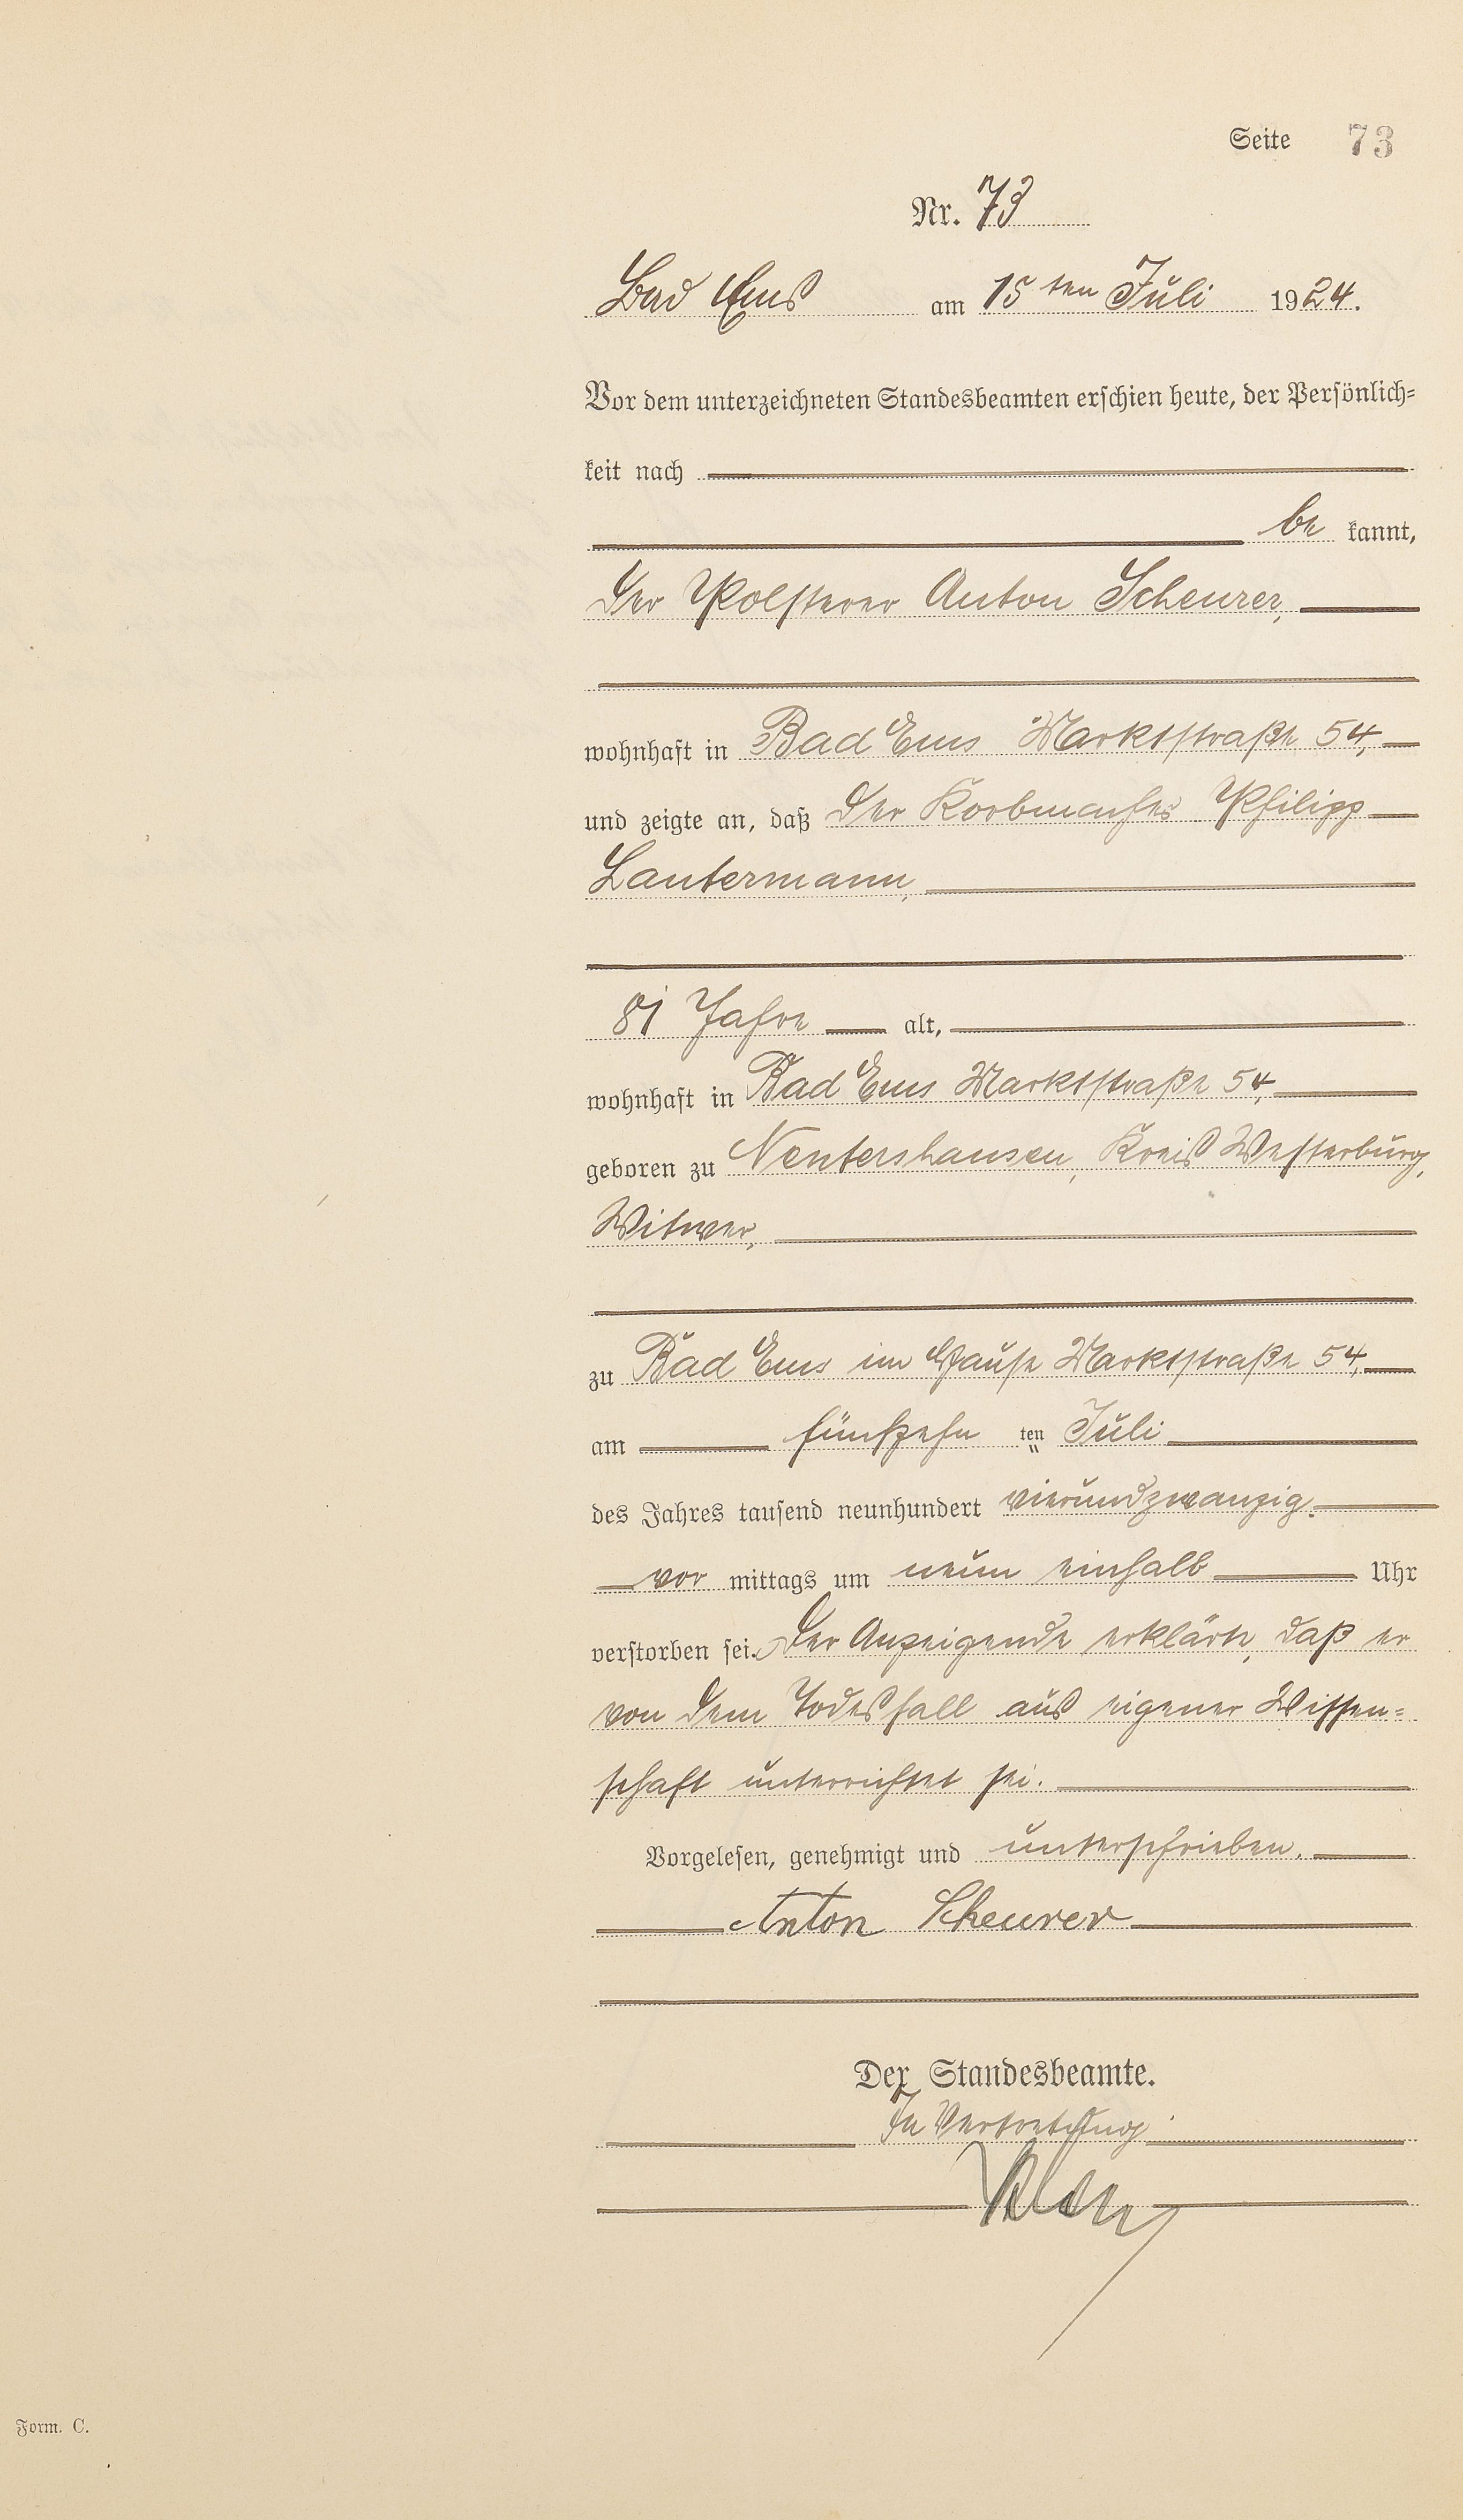 Seite 73
Nr. 73
Bad Ems am 15ten Juli 1924.
Vor dem unterzeichneten Standesbeamten erschien heute, der Persönlich-
keit nach
be kannt,
der Polsterer Anton Scheurer,
wohnhaft in Bad Ems Marktstraße 54,
und zeigte an, daß der Korbmacher Philipp
Lautermann,
81 Jahre alt,
wohnhaft in Bad Ems Marktstraße 54,
geboren zu Nentershausen, Kreis Westerburg,
Witwer,
zu Bad Ems im Hause Marktstraße 54,
am fünfzehn ten Juli
des Jahres tausend neunhundert vierundzwanzig.
vor mittags um neun einhalb Uhr
verstorben sei. Der Anzeigende erklärte, daß er
von dem Todesfall aus eigener Wissen-
schaft unterrichtet sei.
Vorgelesen, genehmigt und unterschrieben.
Anton Scheurer
Der Standesbeamte.
In Vertretung
Form. C.